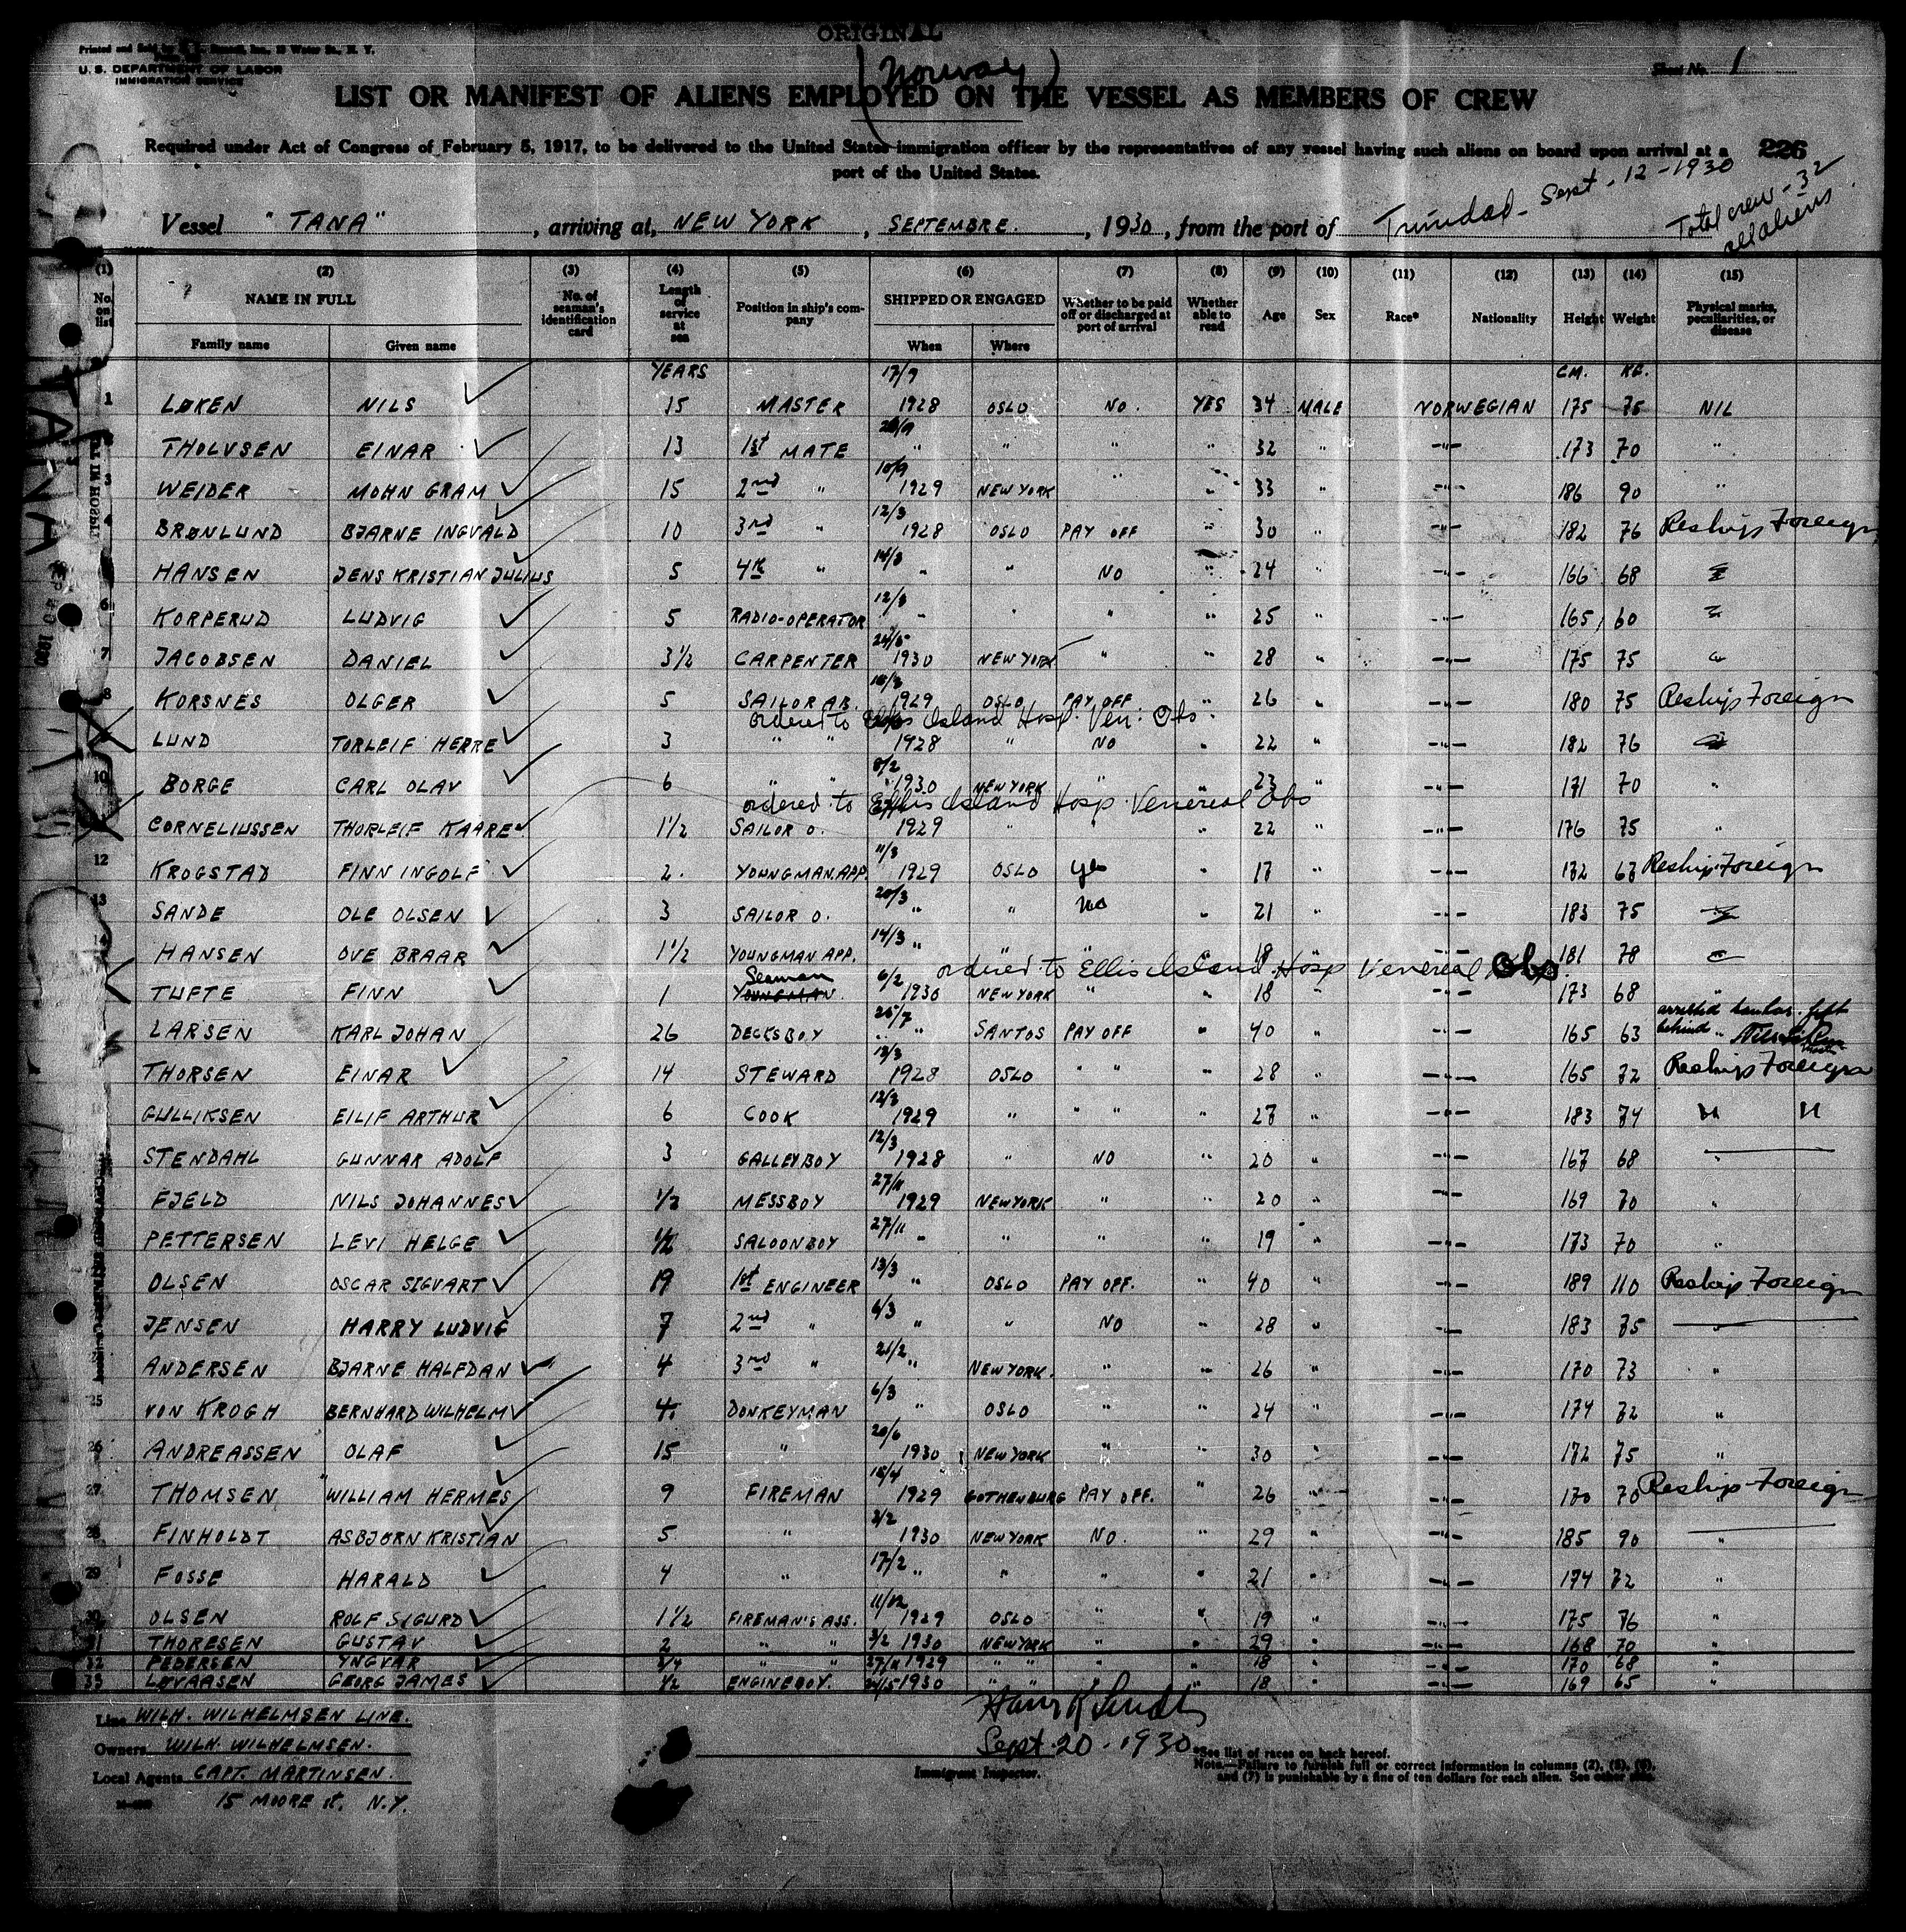 ORIGINAL
(Norway)
Printed and Sold by
U. S. DEPARTMENT OF LABOR
IMMIGRATION SERVICE
Sheet No. 1
LIST OR MANIFEST OF ALIENS EMPLOYED ON THE VESSEL AS MEMBERS OF CREW
Required under Act of Congress of February 5, 1917, to be delivered to the United States immigration officer by the representatives of any vessel having such aliens on board upon arrival at a
port of the United States.
226
Vessel "TANA", arriving at, NEW YORK, SEPTEMBRE., 1930, from the port of Trinidad - Sept - 12 - 1930
Total crew - 32
all aliens
(1) (2) (3) (4) (5) (6) (7) (8) (9) (10) (11) (12) (13) (14) (15)
No. on list NAME IN FULL Family name Given name No. of seaman's identification card Length of service at sea Position in ship's company SHIPPED OR ENGAGED When Where Whether to be paid off or discharged at port of arrival Whether able to read Age Sex Race* Nationality Height Weight Physical marks, peculiarities, or disease
YEARS 17/9 CM. KG.
1 LØKEN NILS 15 MASTER 1928 OSLO NO. YES 34 MALE NORWEGIAN 175 75 NIL
THOLVSEN EINAR 13 1st MATE " " " " 32 " -"- 173 70 "
3 WEIDER MOHN GRAM 15 2nd " 10/9 1929 NEW YORK " " 33 " -"- 186 90 "
4 BRØNLUND BJARNE INGVALD 10 3rd " 12/3 1928 OSLO PAY OFF " 30 " -"- 182 76 Reship Foreign
HANSEN JENS KRISTIAN JULIUS 5 4th " " " NO " 24 " -"- 166 68
6 KORPERUD LUDVIG 5 RADIO-OPERATOR 12/3 " " " " 25 " -"- 165 60
7 JACOBSEN DANIEL 3½ CARPENTER 1930 NEW YORK " " 28 " -"- 175 75
8 KORSNES OLGER 5 SAILOR AB. 1929 OSLO PAY OFF " 26 " -"- 180 75 Reship Foreign
ordered to Ellis Island Hosp. Ven: Obs.
LUND TORLEIF HERRE 3 " " 1928 " NO " 22 " -"- 182 76
10 BORGE CARL OLAV 6 " " 1930 NEW YORK " " 23 " -"- 171 70 "
ordered to Ellis Island Hosp. Venereal Obs
CORNELIUSSEN THORLEIF KAARE 1½ SAILOR O. 1929 " " " 22 " -"- 176 75 "
12 KROGSTAD FINN INGOLF 2. YOUNGMAN.APP. 11/3 1929 OSLO yes " 17 " -"- 172 67 Reship Foreign
13 SANDE OLE OLSEN 3 SAILOR O. 20/3 " " no " 21 " -"- 183 75
14 HANSEN OVE BRAAR 1½ YOUNGMAN APP. 14/3 " " " 18 " -"- 181 78
ordered to Ellis Island Hosp Venereal Obs
TUFTE FINN 1 Seaman YOUNGMAN. 6/2 1930 NEW YORK " " 18 " -"- 173 68 "
LARSEN KARL JOHAN 26 DECKSBOY 25/7 " SANTOS PAY OFF " 40 " -"- 165 63 arrested left behind
THORSEN EINAR 14 STEWARD 1928 OSLO " " " 28 " -"- 165 72 Reship Foreign
18 GULLIKSEN EILIF ARTHUR 6 COOK 12/3 1929 " " " " 27 " -"- 183 74 " "
STENDAHL GUNNAR ADOLF 3 GALLEYBOY 12/3 1928 " NO " 20 " -"- 167 68 "
FJELD NILS JOHANNES ½ MESSBOY 27/11 1929 NEW YORK " " 20 " -"- 169 70 "
PETTERSEN LEVI HELGE ½ SALOONBOY 27/11 " " " " 19 " -"- 173 70 "
OLSEN OSCAR SIGVART 19 1st ENGINEER 13/3 " OSLO PAY OFF. " 40 " -"- 189 110 Reship Foreign
JENSEN HARRY LUDVIG 7 2nd " 6/3 " " NO " 28 " -"- 183 75 "
ANDERSEN BJARNE HALFDAN 4 3rd " 21/2 " NEW YORK. " " 26 " -"- 170 73 "
25 VON KROGH BERNHARD WILHELM 4 DONKEYMAN 6/3 " OSLO " " 24 " -"- 174 72 "
26 ANDREASSEN OLAF 15 " 20/6 1930 NEW YORK " " 30 " -"- 172 75 "
27 THOMSEN WILLIAM HERMES 9 FIREMAN 18/4 1929 GOTHENBURG PAY OFF. " 26 " -"- 170 70 Reship Foreign
28 FINHOLDT ASBJØRN KRISTIAN 5 " 1930 NEW YORK NO. " 29 " -"- 185 90 "
29 FOSSE HARALD 4 " 17/2 " " " " 21 " -"- 174 72 "
30 OLSEN ROLF SIGURD 1½ FIREMAN'S ASS. 11/12 1929 OSLO " " 19 " -"- 175 76 "
31 THORESEN GUSTAV 2 " " 3/2 1930 NEW YORK " " 29 " -"- 168 70 "
32 PEDERSEN YNGVAR 3/4 " " 27/11 1929 " " " " 18 " -"- 170 68 "
33 LØVAASEN GEORG JAMES ½ ENGINEBOY. 24/5 1930 " " " " 18 " -"- 169 65 "
Line WILH. WILHELMSEN LINE.
Owners WILH. WILHELMSEN.
Local Agents CAPT. MARTINSEN.
15 MOORE St. N.Y.
Sept. 20 - 1930
Immigrant Inspector.
*See list of races on back hereof.
Note.—Failure to furnish full or correct information in columns (2), (5), (6),
and (7) is punishable by a fine of ten dollars for each alien. See other side.
TANA